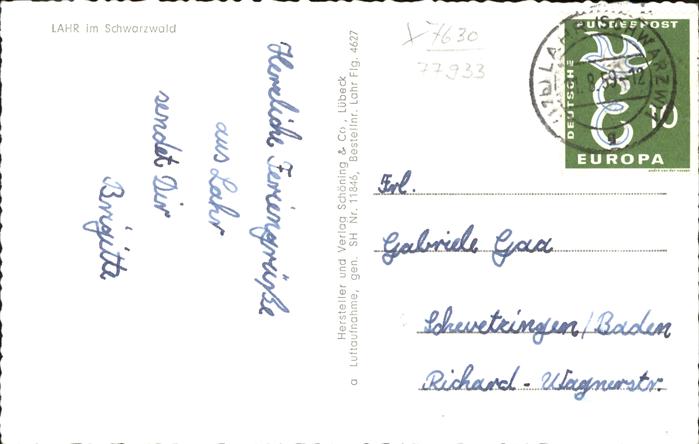 LAHR im Schwarzwald
Herzliche Feriengrüße
aus Lahr
sendet Dir
Brigitte
Hersteller und Verlag Schöning & Co., Lübeck
a Luftaufnahme, gen. SH Nr. 11846, Bestellnr. Lahr Flg. 4627
X 7630
77933
(17b) LAHR (SCHWARZW
1.8.59-12
a
DEUTSCHE
BUNDESPOST
10
EUROPA
Frl.
Gabriele Gaa
Schwetzingen/Baden
Richard-Wagnerstr.